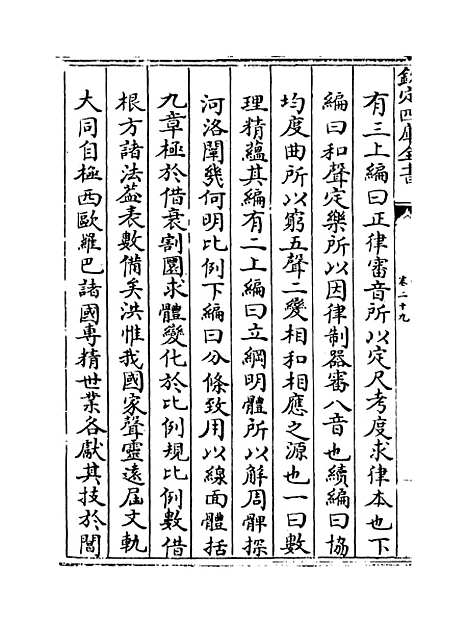 欽定四庫全書
卷二十九
有三上編曰正律審音所以定尺考度求律本也下
編曰和聲定樂所以因律制器審八音也續編曰協
均度曲所以窮五聲二變相和相應之源也一曰數
理精蘊其編有二上編曰立綱明體所以解周髀探
河洛闡幾何明比例下編曰分條致用以線面體括
九章極於借衰割圜求體變化於比例規比例數借
根方諸法葢表數備矣洪惟我國家聲靈遠屆文軌
大同自極西歐羅巴諸國專精世業各獻其技於閶